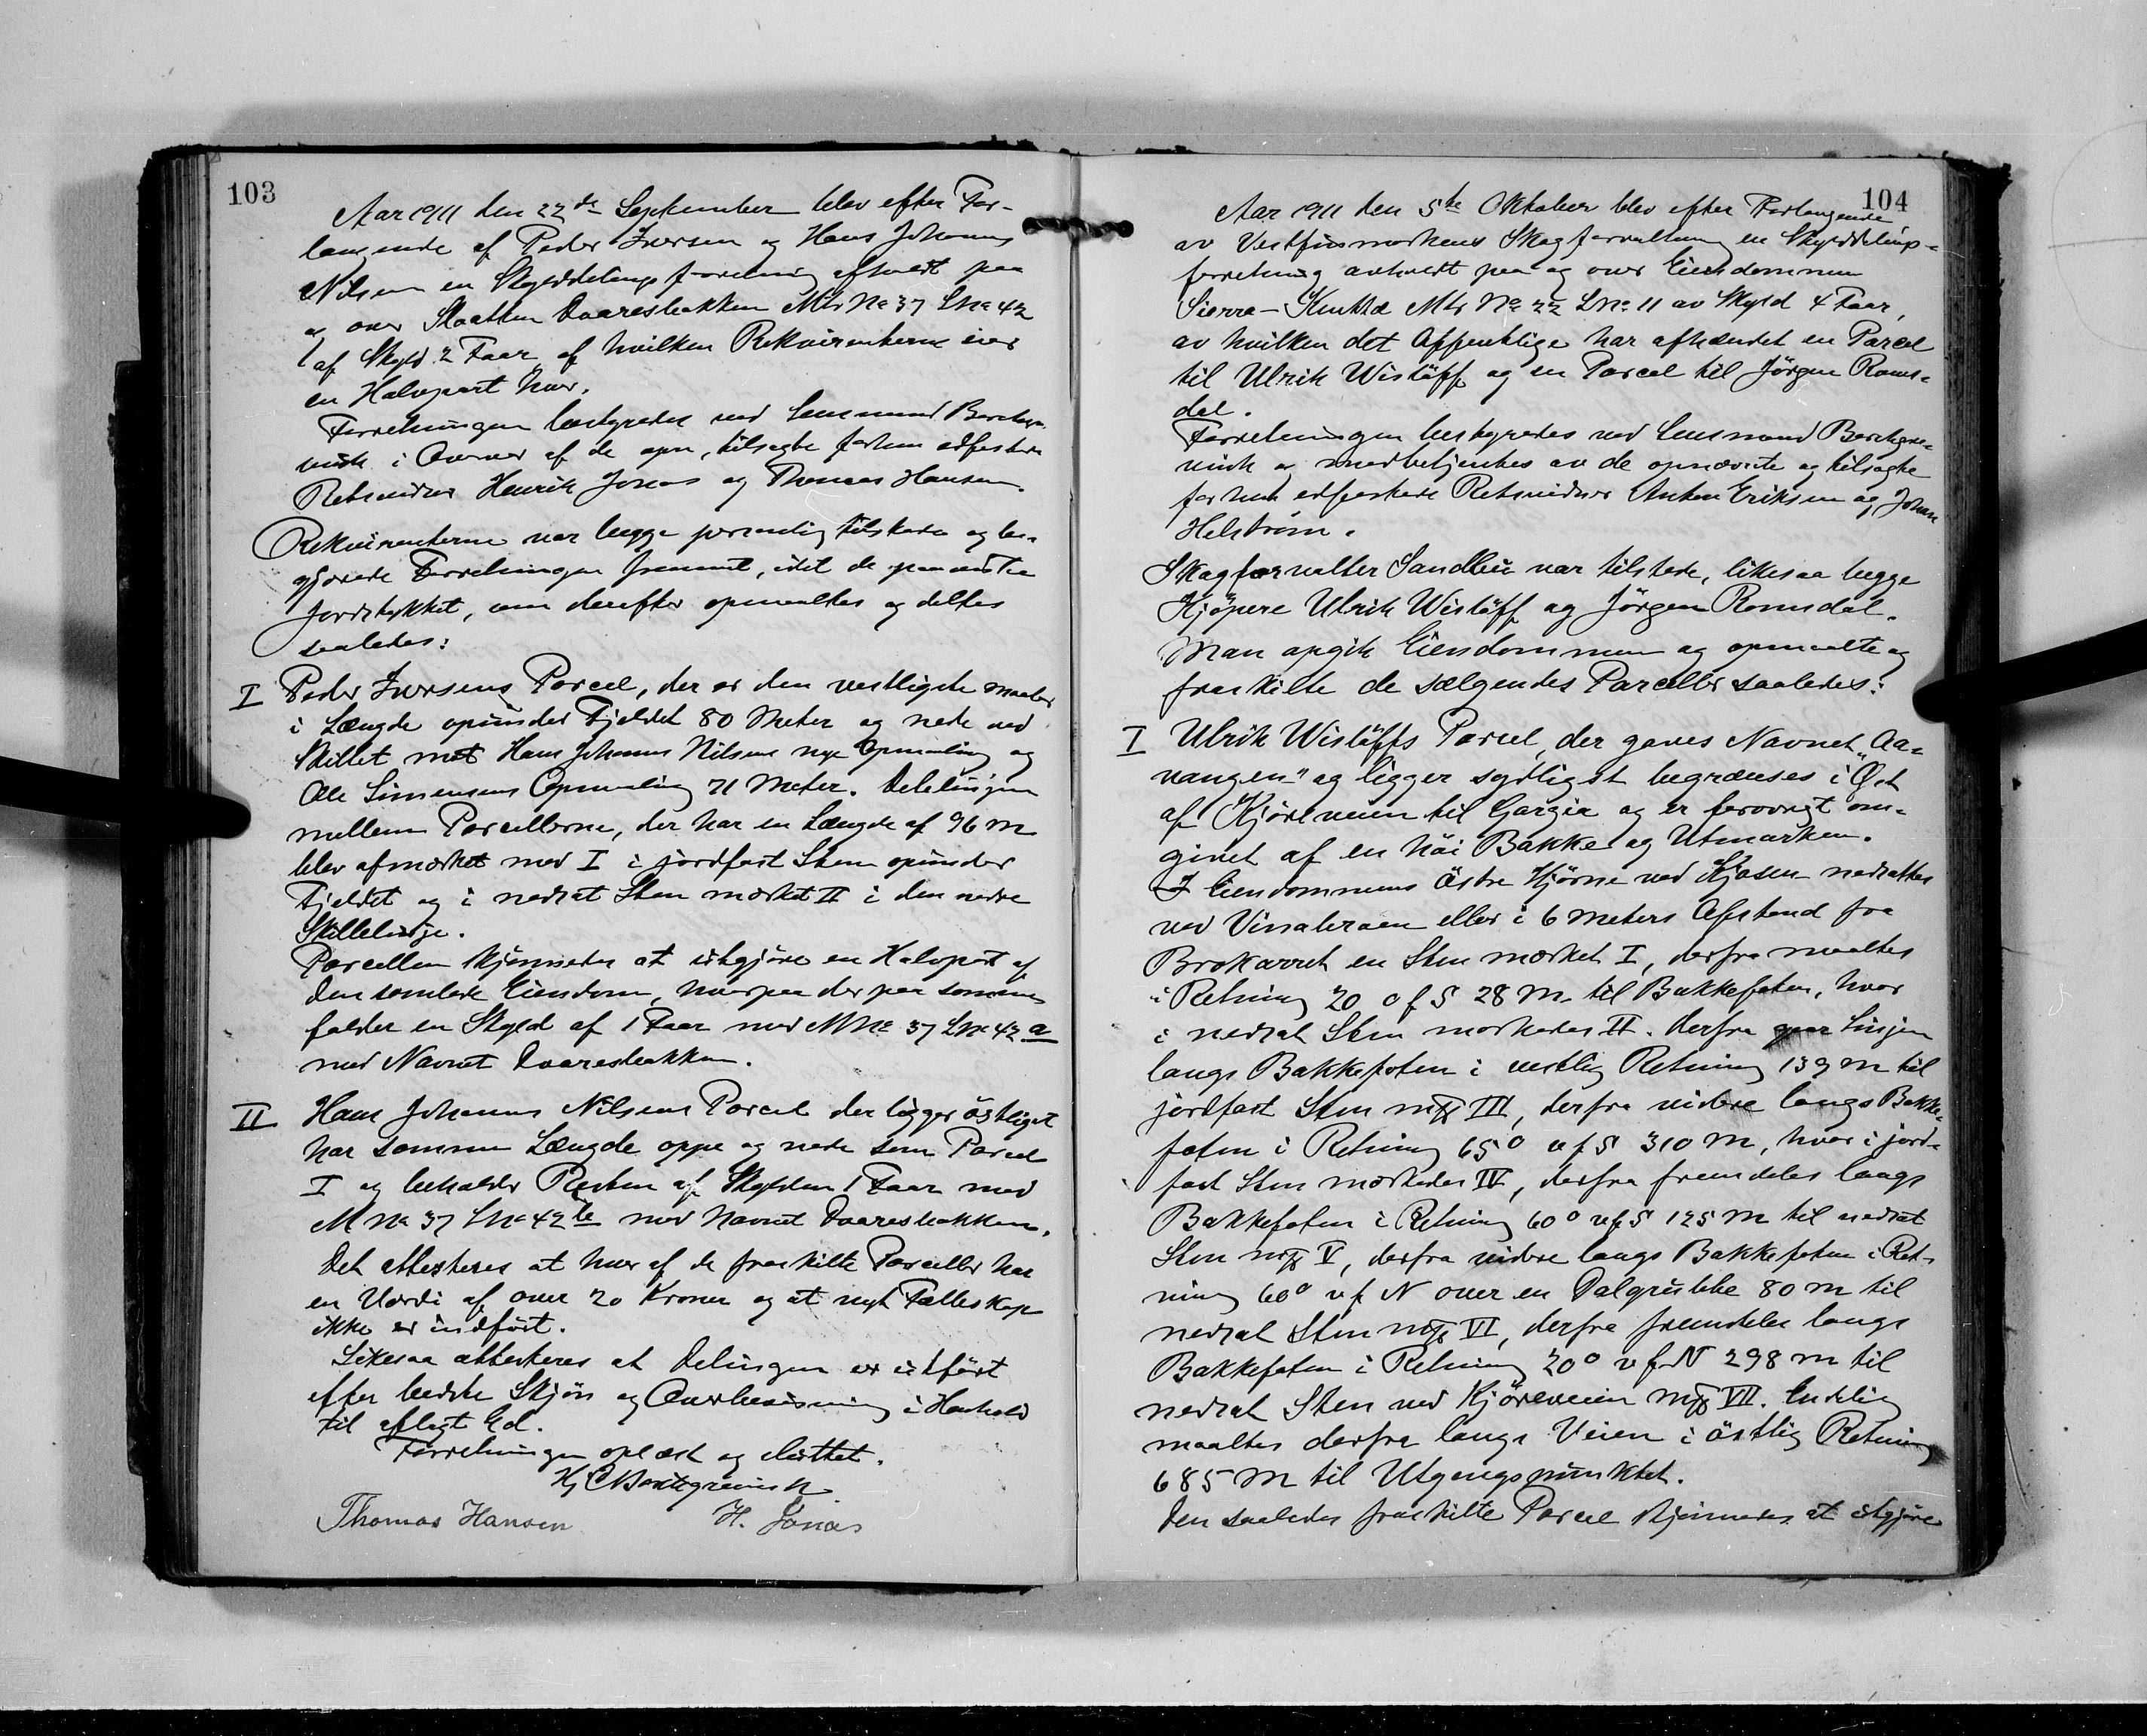 103
Aar 1911 den 22de September blev efter For-
langende af Peder Iversen og Hans Johannes
Nilsen en Skylddelingsforretning afholdt paa
og over Slaatten Daaresbakken Mtr No 37 Lno 42
af Skyld 2 Faar af hvilken Rekvirenterne eier
en Halvpart hver.
Forretningen bestyredes ved Lensmand Borchgre-
vink i Overvær af de opn., tilsagte forhen edfæstede
Retsvidner Henrik Jonas og Thomas Hansen.
Rekvirenterne var begge personlig tilstede og be-
gjærede Forretningen fremmet, idet de paaviste
Jordstykket, som derefter opmaaltes og deltes
saaledes:
I Peder Iversens Parcel, der er den vestligste maaler
i Længde opunder Fjeldet 80 Meter og nede ved
Skillet mot Hans Johannes Nilsens nye Opmaaling og
Ole Simensens Opmaaling 71 Meter. Delelinjen
mellem Parcellerne, der har en Længde af 96 m
blev afmærket med I i jordfast Sten opunder
Fjeldet og i nedsat Sten mærket II i den nedre
Skillelinje.
Parcellen skjønnedes at utgjøre en Halvpart af
den samlede Eiendom, hvorpaa der paa samme
falder en Skyld af 1 Faar med MNo 37 LNo 42 a
med Navnet Daaresbakken.
II Hans Johannes Nilsens Parcel der ligger østligst
har samme Længde oppe og nede som Parcel
I og beholder Resten af Skylden 1 Faar med
MNo 37 LNo 42 b med Navnet Daaresbakken.
Det attesteres at hver af de fraskilte Parceller har
en Værdi af over 20 Kroner og at nyt Fælleskap
ikke er indført.
Likesaa attesteres at Delingen er utført
efter bedste Skjøn og Overbevisning i Henhold
til aflagt Ed.
Forretningen oplæst og sluttet.
Hj C Borchgrevink
Thomas Hansen H. Jonas
104
Aar 1911 den 5te Oktober blev efter Forlangende
av Vestfinmarkens Skogforvaltning en Skylddelings-
forretning avholdt paa og over Eiendommen
Sierra- Mtr No 22 Lno 11 av Skyld 4 Faar,
av hvilken det Offentlige har afhændet en Parcel
til Ulrik Wisløff og en Parcel til Jörgen Roms-
dal.
Forretningen bestyredes ved Lensmand Borchgre-
vink og medbetjentes av de opnævnte og tilsagte
forhen edfæstede Retsvidner Anton Eriksen og Johan
Helström.
Skogforvalter Sandlie var tilstede, likesaa begge
Kjöpere Ulrik Wislöff og Jörgen Romsdal.
Man opgik Eiendommen og opmaalte og
fraskilte de sælgendes Parceller saaledes:
I Ulrik Wislöffs Parcel, der gaves Navnet "Aa-
vangen" og ligger sydligst begrænses i Øst
af Kjöreveien til Gargia og er forøvrigt om-
givet af en höi Bakke og Utmarken.
I Eiendommens östre Hjörne ved nedsattes
ved eller i 6 Meters Afstand fra
Brokarret en Sten mærket I, derfra maaltes
i Retning 20 ° v f S 28 M til Bakkefoten, hvor
i nedsat Sten markedes II. Derfra gaar Linjen
langs Bakkefoten i vestlig Retning 139 m til
jordfast Sten mrk III, derfra videre langs Bakke-
foten i Retning 65° v f S 310 M, hvor i jord-
fast Sten markedes IV, derfra fremdeles langs
Bakkefoten i Retning 60° v f S 125 M til nedsat
Sten mrk V, derfra videre langs Bakkefoten i Ret-
ning 60° v f N over en Dalgrubbe 80 m til
nedsat Sten mrk VI, derfra fremdeles langs
Bakkefoten i Retning 20° v f N 298 m til
nedsat Sten ved Kjöreveien mrk VII. Endelig
maaltes derfra langs Veien i östlig Retning
685 M til Utgangspunktet.
Den saaledes fraskilte Parcel skjønnedes at utgjøre